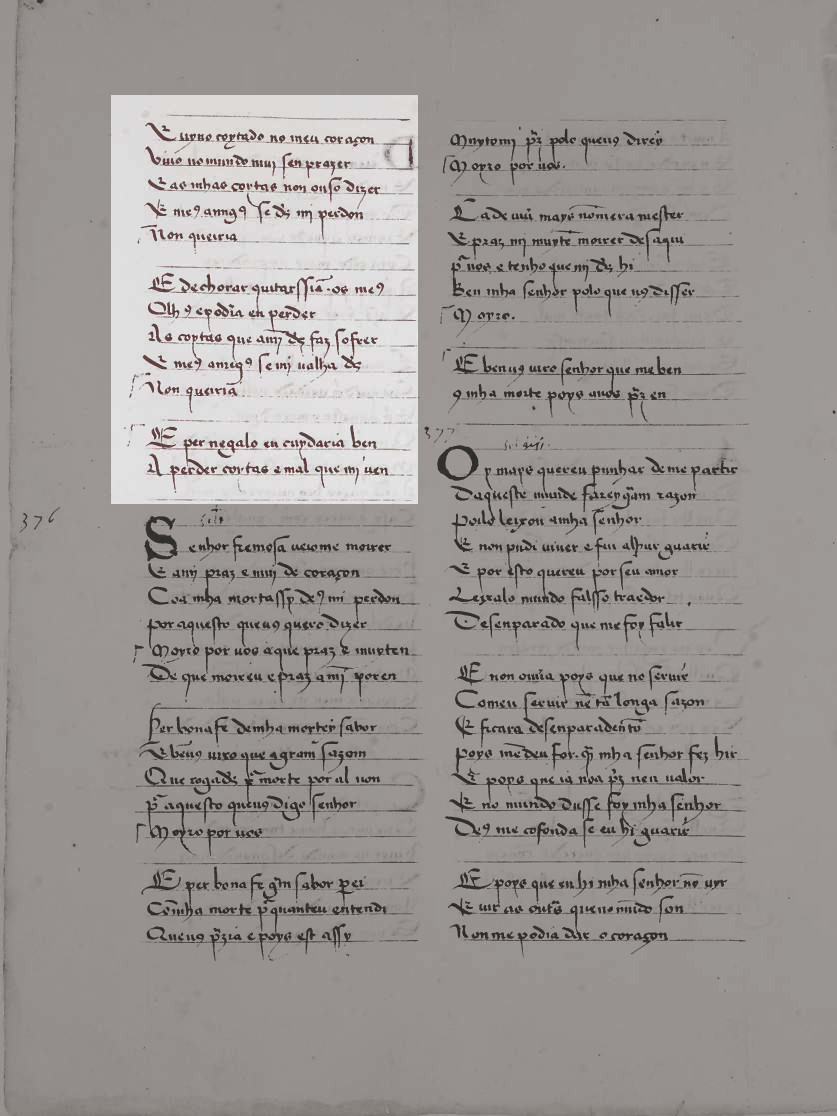 E uyuo coytado no meu coraçon
Viuo no mundo mui sen prazer
E as mhas coytas non ouso dizer
E me9 amig9 se d̄s mi perdon
Non queiria
E de chorar quitarssiā os me9
Olh9 e podīa en perder
As coytas que amj d̄s faz sofrer
E me9 amig9 se mj ualha d̄s
Non queiriā
E per negalo eu cuydaria ben
A perder coytas e mal que mj uen
376
Senhor fremosa ueiome moirer
E amj praz e muj de coraçon
Coa mha mort assy de9 mi perdon
por aquesto queu9 quero dizer
Moyro por uos a que praz e muyten
De que moireu e praz amj̄ poren
Per bona fe demha mortey sabor
Que roga d̄s pā morte por al non
pā aquesto queu9 digo senhor
Moyro por uos
E per bona fe gm̄ sabor
Com̄ha morte quanteu entendi
e poys est assy
Muytomj polo queu9 direy
Moyro por uos.
E praz mi muytē moirer desaqui
uos e tenho que mj d̄s hi
Ben mha senhor polo que u9 disser
Moyro.
E benu9 uiro senhor que me ben
9 mha morte poys auos en
377
Oy mays quereu punhar de me partir
Daqueste mundo
Poilo leixou amha senhor
E non pudi uiuer e fui guarir
E por esto quereu por seu amor
Leixalo mundo falsso traedor
Desenparado que me foy falir
E non poys que no seruir
Comeu seruir nē tā longa sazon
E ficara desenparadentō
poys mē deu for. mha senhor fez hir
E poys que ia nō a nen ualor
E no mundo dusse foy mha senhor
De9 me cofonda se eu hi guarir
E poys que eu hi mha senhor nō uyr
E uir as outs̄ queno mūdo son
Non me podia dar o coraçon